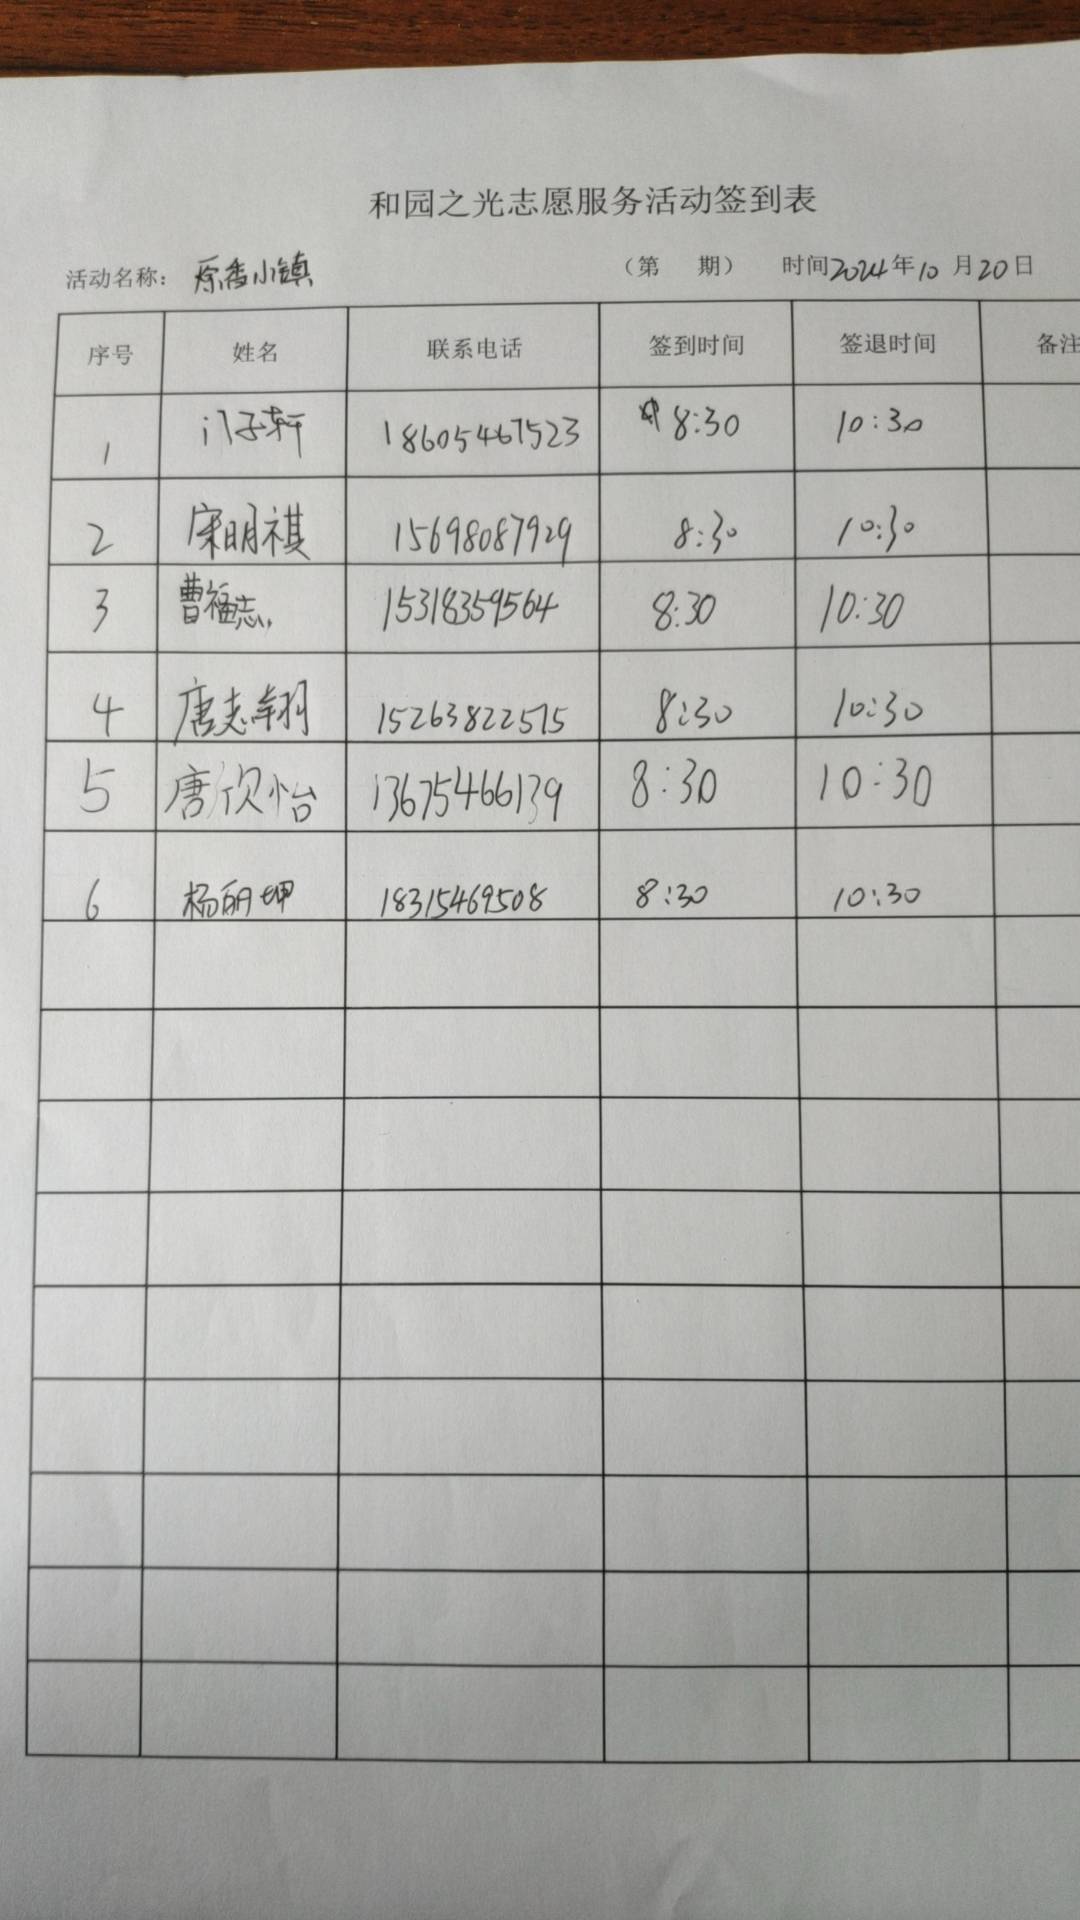 和园之光志愿服务活动签到表
活动名称：原香小镇 （第 期） 时间2024年10月20日
序号 姓名 联系电话 签到时间 签退时间 备注
1 门子轩 18605467523 8:30 10:30
2 宋明祺 15698087929 8:30 10:30
3 曹福志 15318359564 8:30 10:30
4 唐志翱 15263822515 8:30 10:30
5 唐欣怡 13675466139 8:30 10:30
6 杨丽坤 18315469508 8:30 10:30